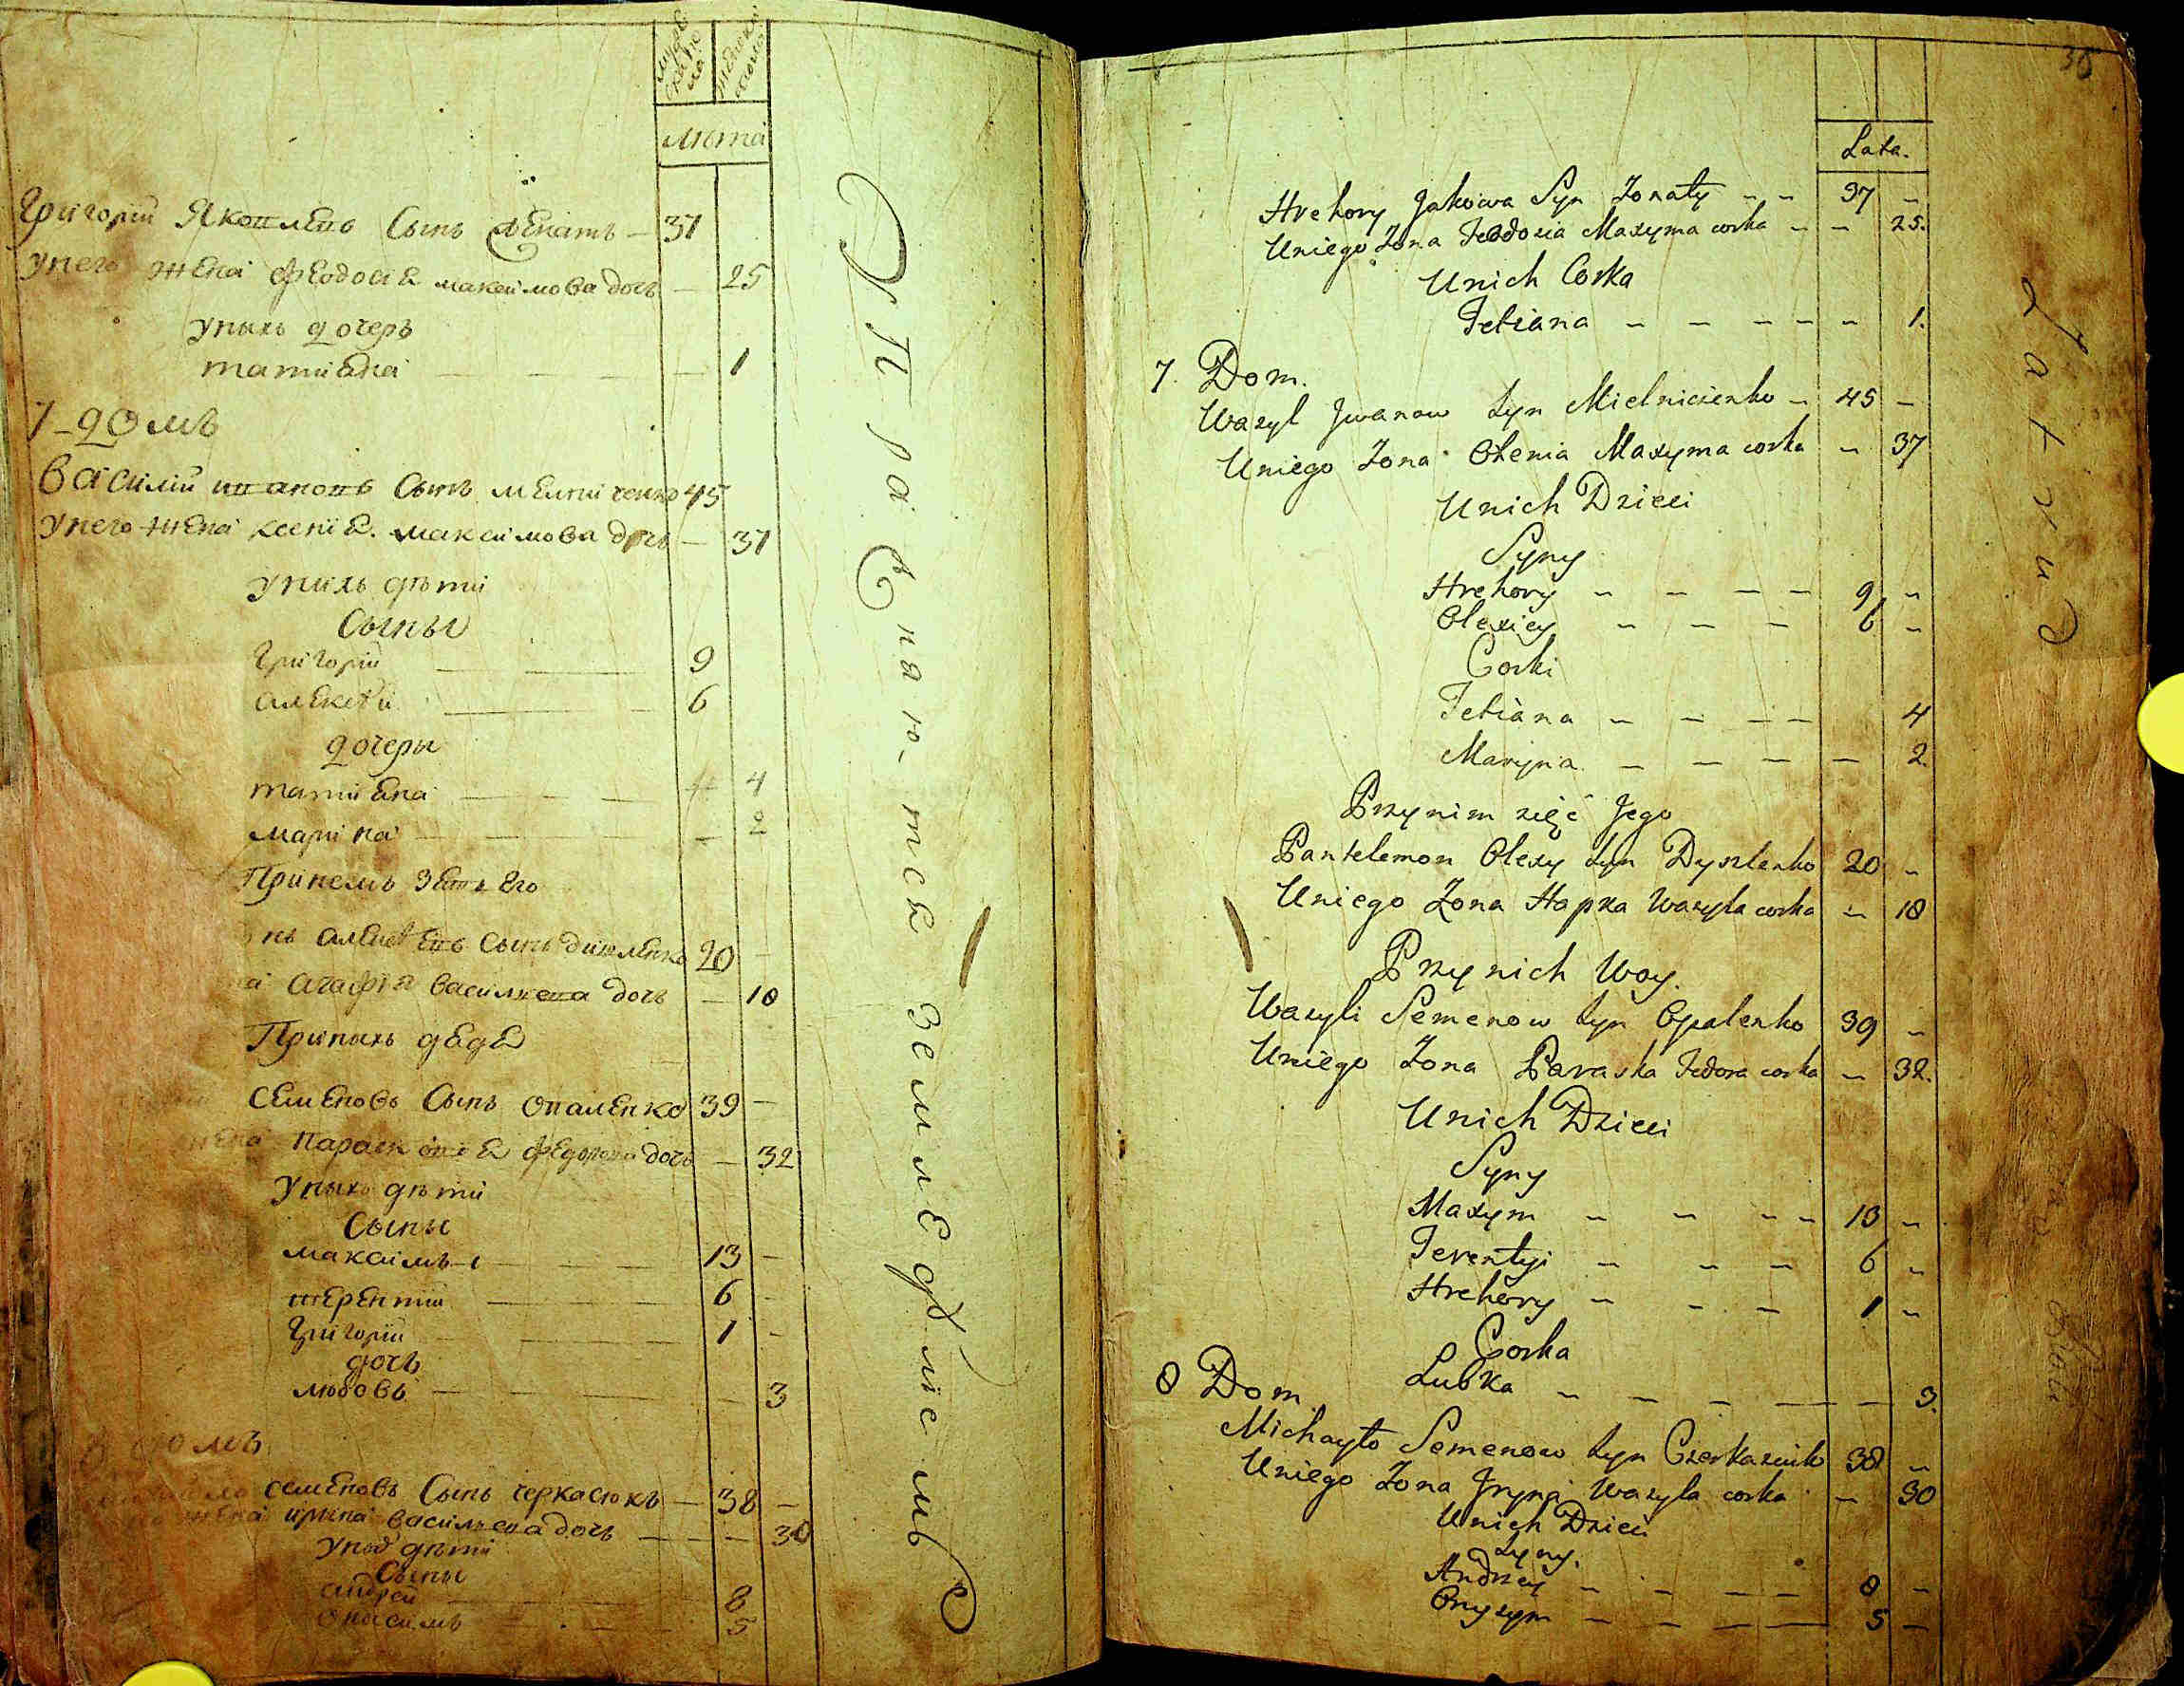 мужеска полу
женска полу
лѣта
Григорий Яковлевъ Сынъ женатъ — 37
унего жена феодосия максимова дочь — 25
унихъ дочеръ
татияна — 1
7 — домъ
василий ивановъ Сынъ мелниченко 45
унего жена ксения максимова дочь — 37
унихъ дѣти
Сыны
Григорий — 9
алексѣй — 6
дочеры
татияна — 4
марина — 2
Принемъ зять его
алексѣевъ Сынъ 20
агафия василиева дочь — 18
Принихъ дядя
семеновъ Сынъ опаленко 39 —
жена параскевия федорова дочь — 32
унихъ дѣти
Сыны
максимъ — 13 —
терентий — 6 —
Григорий — 1 —
дочъ
любовъ — 3
8 домъ
семеновъ Сынъ черкасюкъ — 38 —
жена ирина василиева дочь — 30
унихъ дѣти
Сыны
андрей — 8
онисимъ — 5
Упражняются земледѣлiемъ
36
Lata.
Hrehory Jakowa Syn Żonaty - - 37 -
Uniego Żona Teodosia Maxyma corka - - 25.
Unich Corka
Tetiana - - - - - 1.
7. Dom.
Wasyl Jwanow Syn Mielniczenko - 45 -
Uniego Żona Xenia Maxyma corka - 37
Unich Dzieci
Syny
Hrehory - - - - 9 -
Olexiey - - - 6 -
Corki
Tetiana - - - - 4
Maryna - - - - 2.
Przynim zięć Jego
Pantelemon Olexy Syn Dyszlenko 20 -
Uniego Żona Hapka Wasyla corka - 18
Przynich Woy.
Wasyli Semenow Syn Opalenko 39 -
Uniego Żona Paraska Fedora corka - 32.
Unich Dzieci
Syny
Maxym - - - - 13 -
Terentyi - - - 6 -
Hrehory - - - 1 -
Corka
Lubka - - - - - 3.
8 Dom
Michayło Semenow Syn Czerkasiuk 38 -
Uniego Żona Jryna Wasyla corka - 30
Unich Dzieci
Syny.
Andrzey - - - - 8 -
Onysym - - - - 5 -